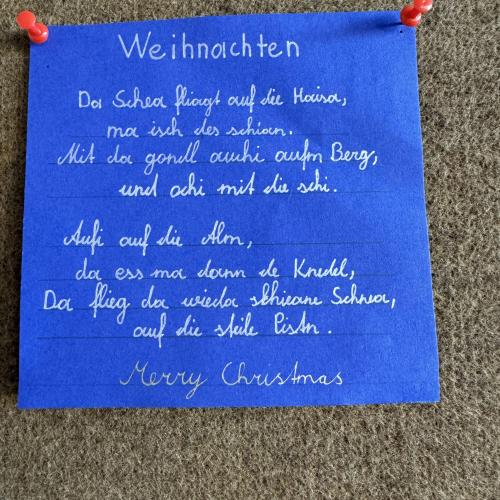 Weihnachten
Da Schea fliagt auf die Haisa,
ma isch des schian.
Mit da gondl auchi aufm Berg,
und ochi mit die schi.
Aufi auf die Alm,
da ess ma dann de Knedel,
Da flieg da wieda schieane Schnea,
auf die steile Pistn.
Merry Christmas